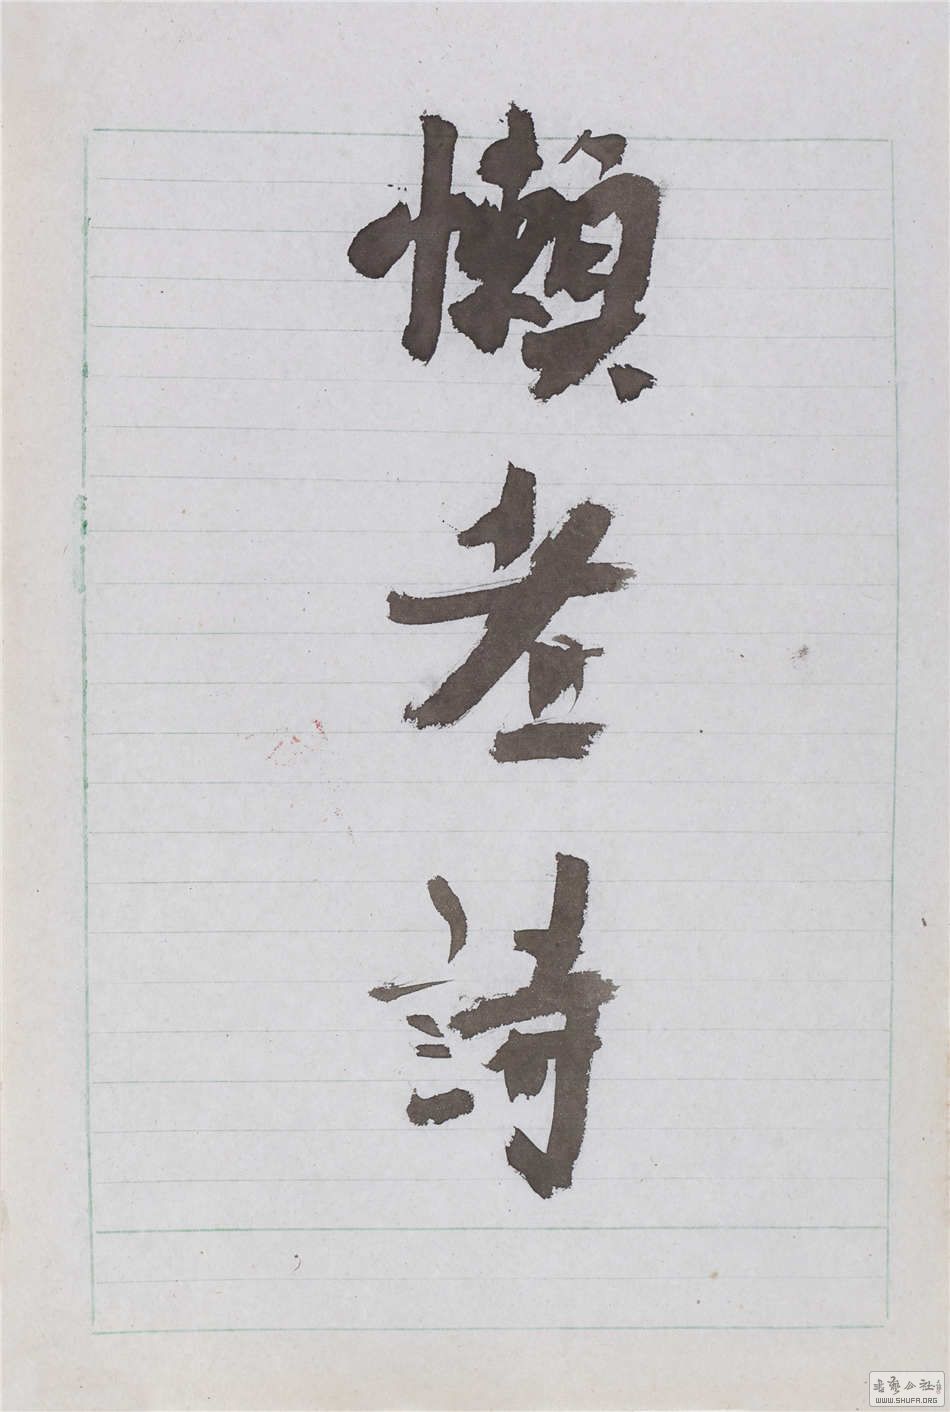 懶者詩
書藝公社
WWW.SHUFA.ORG